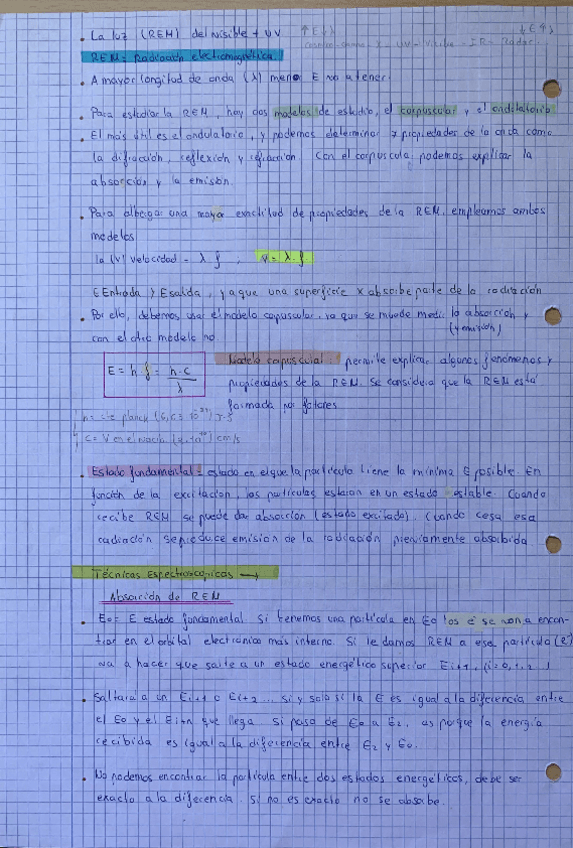 La luz (REM) del visible + UV ↑E↓λ ↓E↑λ
UV - Visible - IR - Radar
REM = Radiación electromagnética.
A mayor longitud de onda (λ) menor E va a tener.
Para estudiar la REM, hay dos modelos de estudio, el corpuscular y el ondulatorio
El más útil es el ondulatorio, y podemos determinar propiedades de la onda como
la difracción, reflexión y refracción. Con el corpuscular podemos explicar la
absorción y la emisión.
Para albergar una mayor exactitud de propiedades de la REM, empleamos ambos
modelos
la (v) velocidad = λ f , v = λ · f
E Entrada > E salida, ya que una superficie x absorbe parte de la radiación
Por ello, debemos usar el modelo corpuscular, ya que se puede medir la absorción y
(y emisión)
con el otro modelo no
E = h f = h·c / λ
Modelo corpuscular: permite explicar algunos fenómenos y
propiedades de la REM. Se considera que la REM está
formada por fotones
h = cte planck
c = V en el vacío cm/s
Estado fundamental = estado en el que la partícula tiene la mínima E posible. En
función de la excitación, las partículas estarán en un estado estable. Cuando
recibe REM se puede dar absorción (estado excitado). Cuando cesa esa
radiación se produce emisión de la radiación previamente absorbida
Técnicas Espectroscópicas →
Absorción de REM
E₀ = E estado fundamental. Si tenemos una partícula en E₀ los e⁻ se van a encon-
trar en el orbital electrónico más interno. Si le damos REM a esa partícula (e⁻)
va a hacer que salte a un estado energético superior Ei+1, (i=0,1,2...)
Saltará a un Ei+1 o Ei+2 ... si y solo si la E es igual a la diferencia entre
el E₀ y el Ei+n que llega. Si pasa de E₀ a E₂, es porque la energía
recibida es igual a la diferencia entre E₂ y E₀.
No podemos encontrar la partícula entre dos estados energéticos, debe ser
exacto a la diferencia. Si no es exacto no se absorbe.